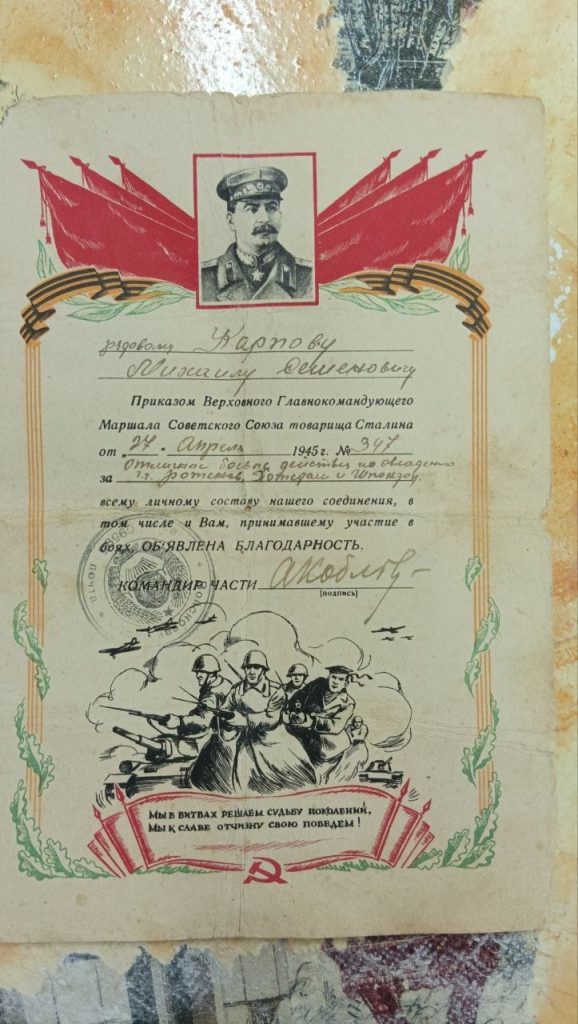 рядовому Карпову
Михаилу Семеновичу
Приказом Верховного Главнокомандующего
Маршала Советского Союза товарища Сталина
от „27 - Апреля 1945 г. № 347
Отличные боевые действия по овладению
за г.г. Ратенов, Потсдам и Шпандау
всему личному составу нашего соединения, в
том числе и Вам, принимавшему участие в
боях, ОБ'ЯВЛЕНА БЛАГОДАРНОСТЬ.
КОМАНДИР ЧАСТИ
[подпись]
МЫ В БИТВАХ РЕШАЕМ СУДЬБУ ПОКОЛЕНИЙ,
МЫ К СЛАВЕ ОТЧИЗНУ СВОЮ ПОВЕДЕМ!